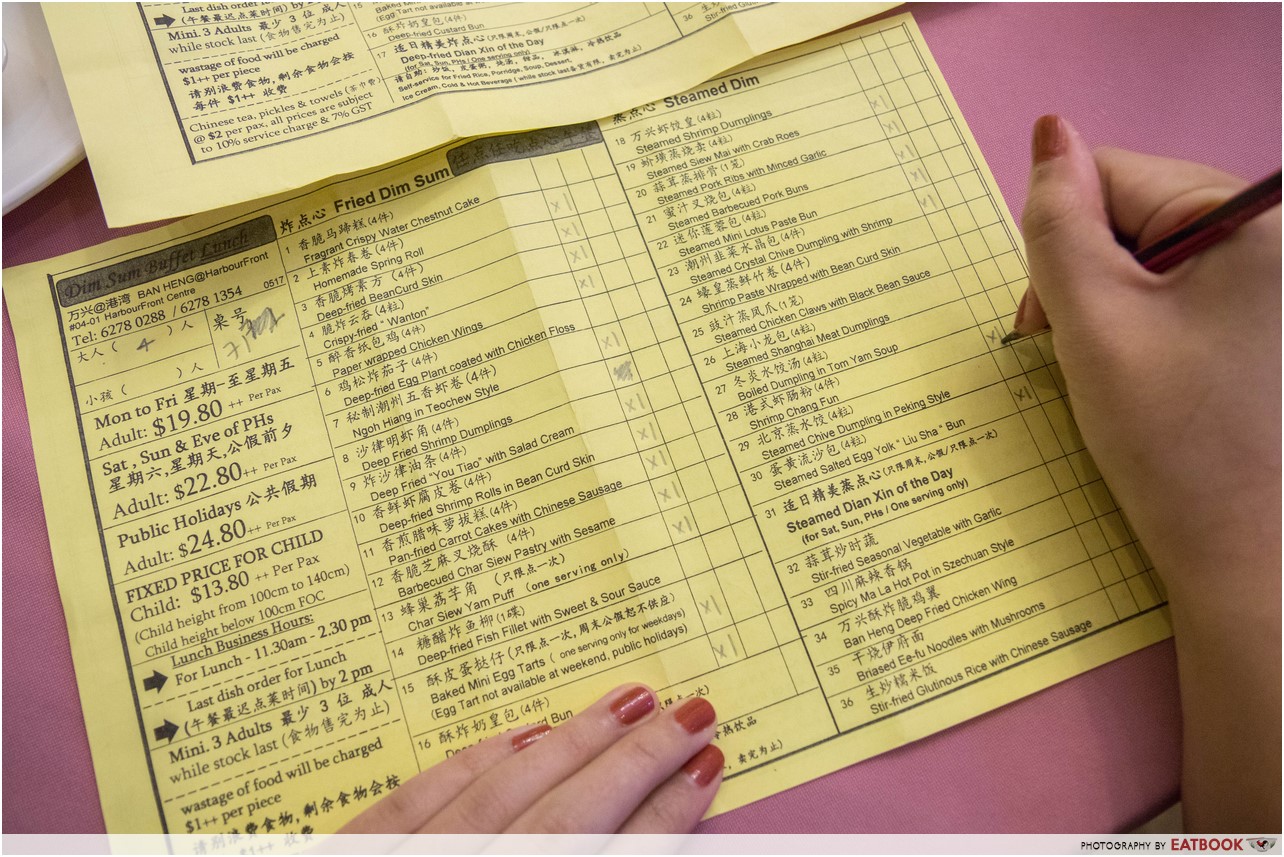 Last dish order for lunch
(午餐最迟点菜时间) by 2 pm
Mini. 3 Adults 最少 3 位 成人
while stock last (食物售完为止)
wastage of food will be charged
$1++ per piece
请别浪费食物,剩余食物会按
每件 $1++ 收费
Chinese tea, pickles & towels (茶巾费)
@ $2 per pax, all prices are subject
to 10% service charge & 7% GST
15
(Egg Tart not available at weekend, public holidays)
16 酥炸奶皇包(4件)
Deep-fried Custard Bun
17 适日精美炸点心(只限周末,公假/只限一次)
Deep-fried Dian Xin of the Day
(for Sat, Sun, PHs / One serving only)
Self-service for Fried Rice, Porridge, Soup, Dessert,
Ice Cream, Cold & Hot Beverage ( while stock last
36
Dim Sum Buffet Lunch
万兴@港湾 BAN HENG@HarbourFront
#04-01 HarbourFront Centre
0517
Tel: 6278 0288 / 6278 1354
大人 ( 4 ) 人
桌号
小孩 ( ) 人
Mon to Fri 星期一至星期五
Adult: $19.80 ++ Per Pax
Sat , Sun & Eve of PHs
星期六,星期天,公假前夕
Adult: $22.80++ Per Pax
Public Holidays 公共假期
Adult: $24.80++ Per Pax
FIXED PRICE FOR CHILD
Child: $13.80 ++ Per Pax
(Child height from 100cm to 140cm)
Child height below 100cm FOC
Lunch Business Hours:
For Lunch - 11.30am - 2.30 pm
Last dish order for Lunch
(午餐最迟点菜时间) by 2 pm
Mini. 3 Adults 最少 3 位 成人
while stock last (食物售完为止)
wastage of food will be charged
$1++ per piece
请别浪费食物,剩余食物会按
炸点心 Fried Dim Sum
任点任吃点心
1 香脆马蹄糕(4件)
Fragrant Crispy Water Chestnut Cake
x1
2 上素炸春卷(4件)
Homemade Spring Roll
x1
3 香脆烤素方 (4件)
Deep-fried BeanCurd Skin
x1
4 脆炸云吞(4粒)
Crispy-fried " Wanton"
x1
5 醉香纸包鸡(4件)
Paper wrapped Chicken Wings
6 鸡松炸茄子(4件)
Deep-fried Egg Plant coated with Chicken Floss
x1
7 秘制潮州五香虾卷(4件)
Ngoh Hiang in Teochew Style
8 沙律明虾角(4件)
Deep Fried Shrimp Dumplings
x1
9 炸沙律油条(4件)
Deep Fried "You Tiao" with Salad Cream
x1
10 香鲜虾腐皮卷(4件)
Deep-fried Shrimp Rolls in Bean Curd Skin
x1
11 香煎腊味萝拔糕(4件)
Pan-fried Carrot Cakes with Chinese Sausage
x1
12 香脆芝麻叉烧酥 (4件)
Barbecued Char Siew Pastry with Sesame
x1
13 蜂巢荔芋角 (只限一次)
Char Siew Yam Puff (one serving only)
14 糖醋炸鱼柳(1碟)
Deep-fried Fish Fillet with Sweet & Sour Sauce
x1
15 酥皮蛋挞仔(只限一次,周末公假恕不供应)
Baked Mini Egg Tarts ( one serving only for weekdays)
(Egg Tart not available at weekend, public holidays)
x1
16 酥炸奶皇包(4件)
Bun
蒸点心 Steamed Dim
18 万兴虾饺皇(4粒)
Steamed Shrimp Dumplings
x1
19 蚧璜蒸烧卖(4粒)
Steamed Siew Mai with Crab Roes
x1
20 蒜茸蒸排骨(1笼)
Steamed Pork Ribs with Minced Garlic
21 蜜汁叉烧包(4粒)
Steamed Barbecued Pork Buns
x1
22 迷你莲蓉包(4粒)
Steamed Mini Lotus Paste Bun
x1
23 潮州韭菜水晶包(4件)
Steamed Crystal Chive Dumpling with Shrimp
24 蠔皇蒸鲜竹卷(4件)
Shrimp Paste Wrapped with Bean Curd Skin
25 豉汁蒸凤爪(1笼)
Steamed Chicken Claws with Black Bean Sauce
26 上海小龙包(4粒)
Steamed Shanghai Meat Dumplings
27 冬炎水饺汤(4粒)
Boiled Dumpling in Tom Yam Soup
28 港式虾肠粉(4件)
Shrimp Chang Fun
29 北京蒸水饺(4粒)
Steamed Chive Dumpling in Peking Style
30 蛋黄流沙包(4粒)
Steamed Salted Egg Yolk " Liu Sha " Bun
x1
31 适日精美蒸点心(只限周末,公假/只限点一次)
Steamed Dian Xin of the Day
(for Sat, Sun, PHs / One serving only)
32 蒜茸炒时蔬
Stir-fried Seasonal Vegetable with Garlic
33 四川麻辣香锅
Spicy Ma La Hot Pot in Szechuan Style
34 万兴酥炸脆鸡翼
Ban Heng Deep Fried Chicken Wing
35 干烧伊府面
Briased Ee-fu Noodles with Mushrooms
36 生炒糯米饭
Stir-fried Glutinous Rice with Chinese Sausage
PHOTOGRAPHY BY EATBOOK